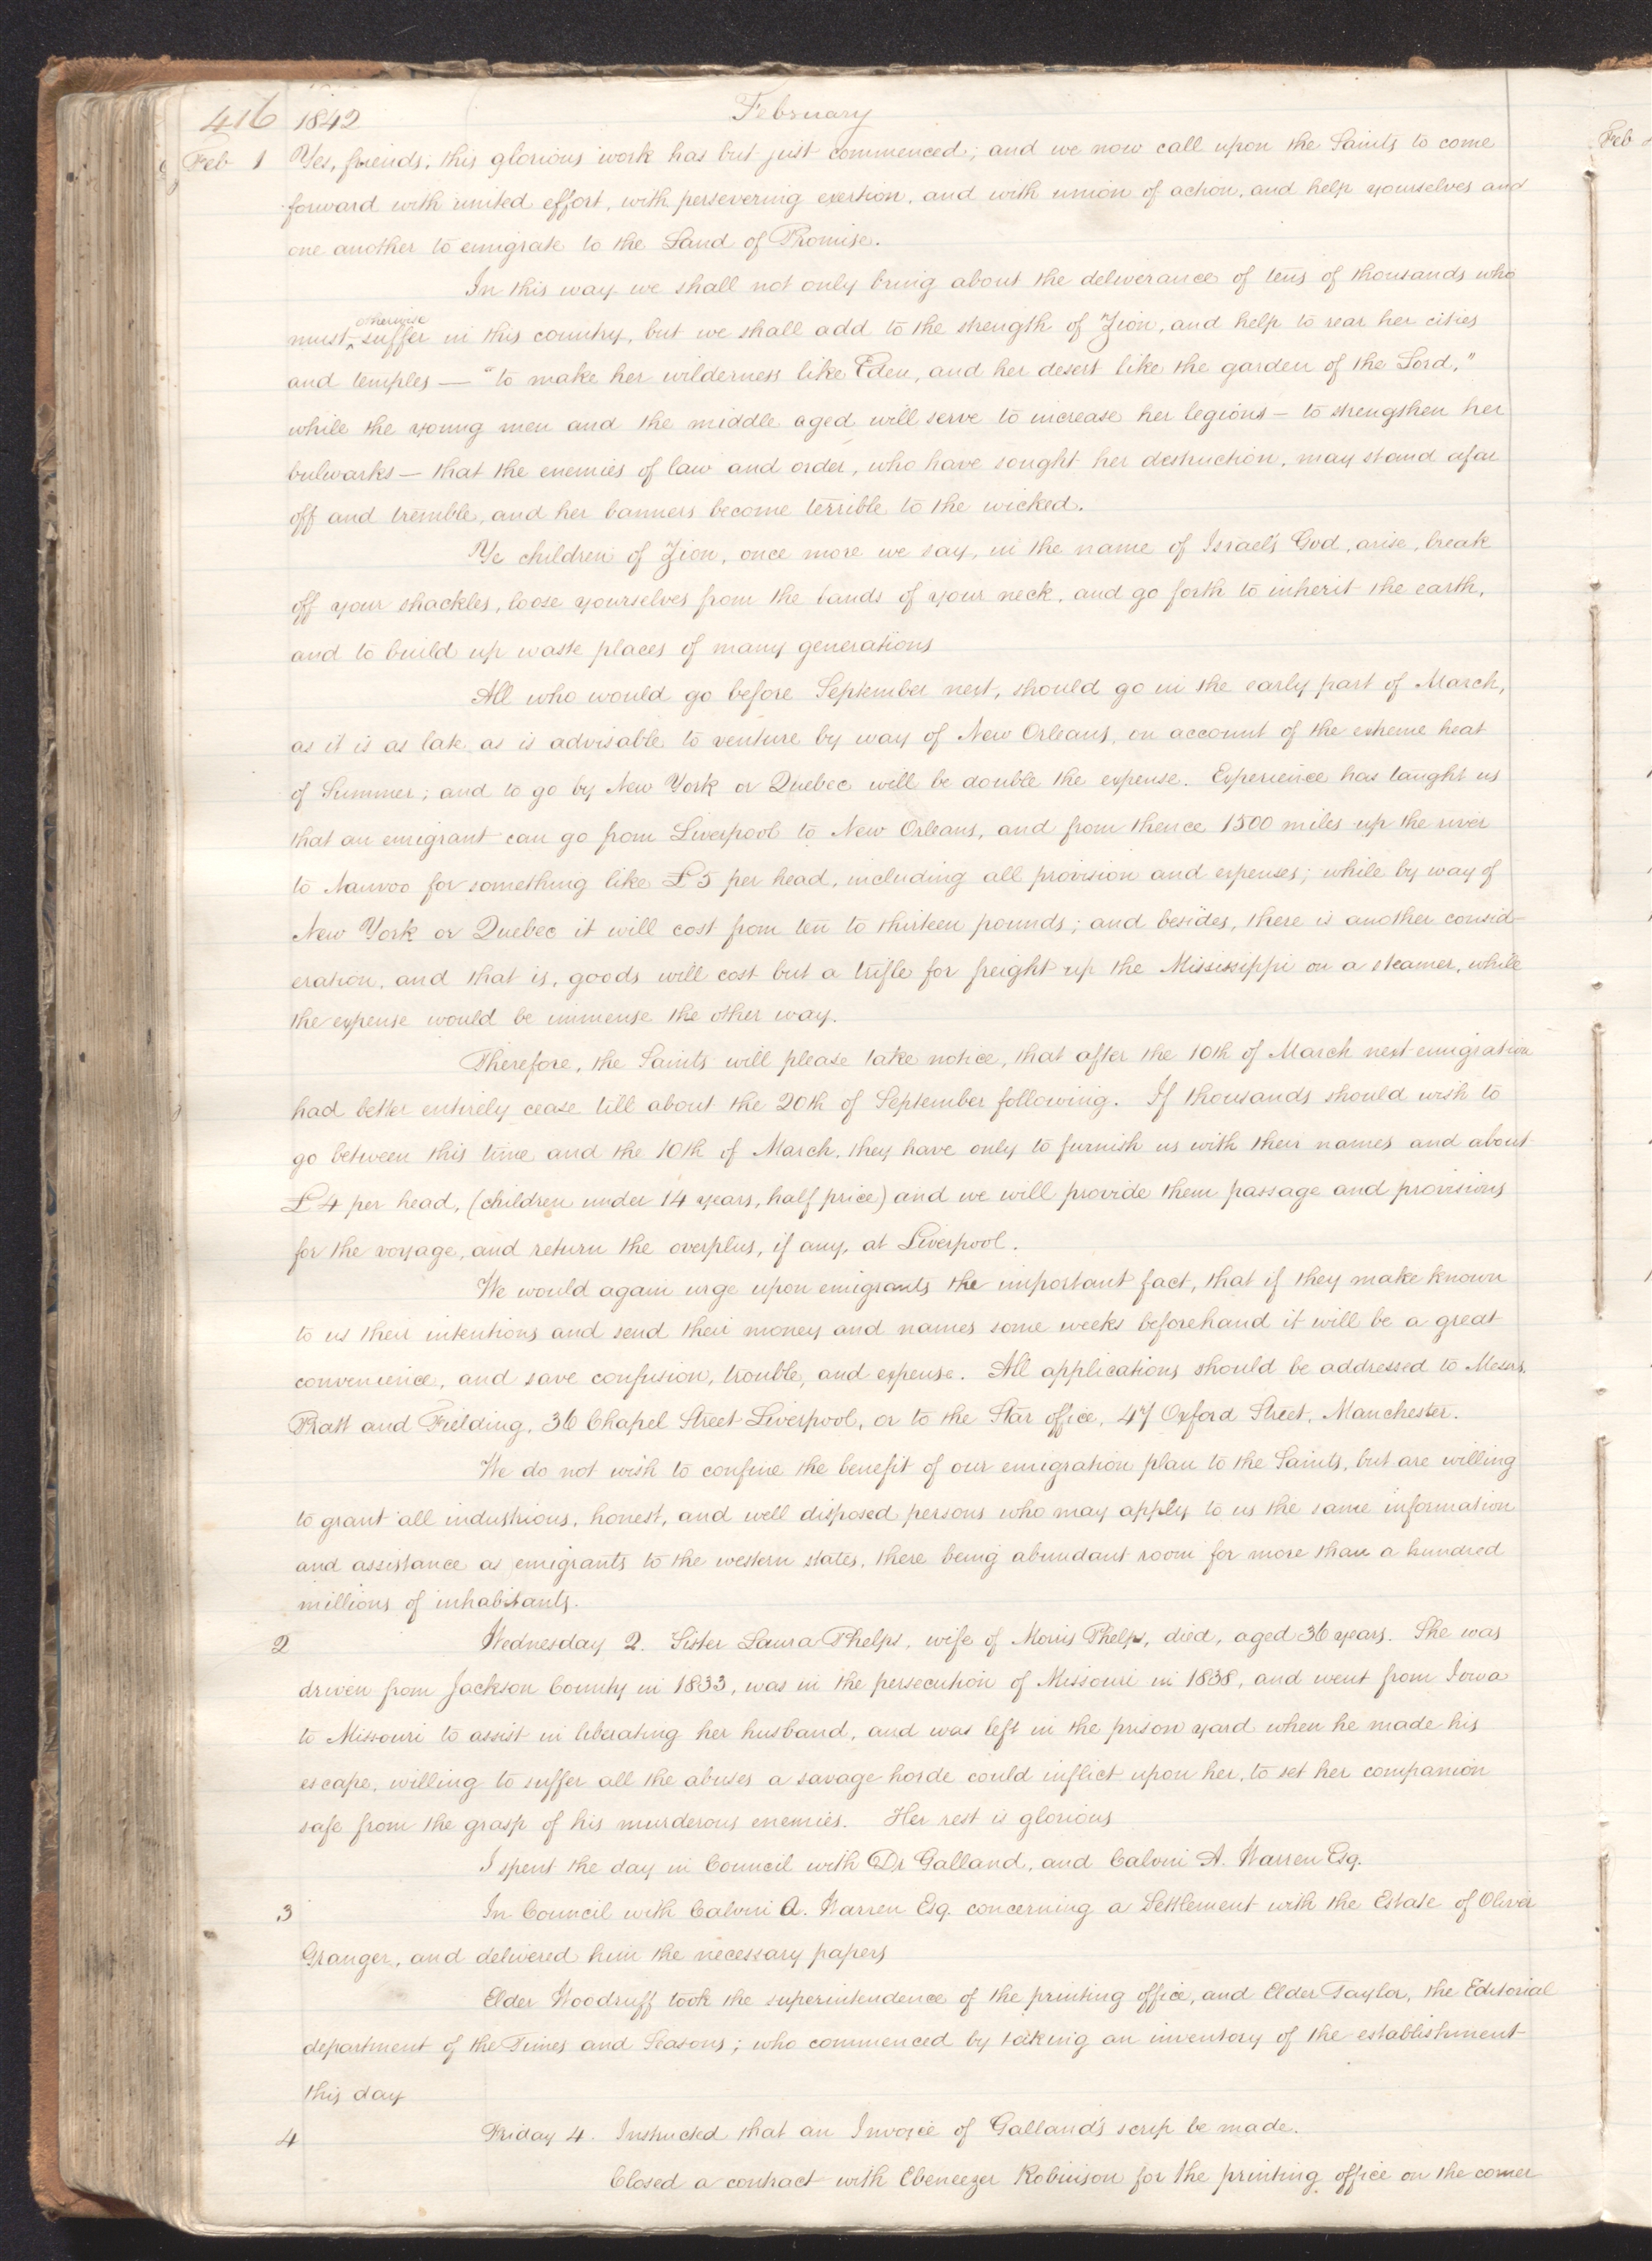 416 1842 February
Feb 1 Yes, friends, this glorious work has but just commenced; and we now call upon the Saints to come
forward with united effort, with persevering exertion, and with union of action, and help yourselves and
one another to emigrate to the Land of Promise.
In this way we shall not only bring about the deliverance of tens of thousands who
otherwise
must ^ suffer in this country, but we shall add to the strength of Zion, and help to rear her cities
and temples — "to make her wilderness like Eden, and her desert like the garden of the Lord,"
while the young men and the middle aged will serve to increase her legions — to strengthen her
bulwarks — that the enemies of law and order, who have sought her destruction, may stand afar
off and tremble, and her banners become terrible to the wicked.
Ye children of Zion, once more we say, in the name of Israel's God, arise, break
off your shackles, loose yourselves from the bands of your neck, and go forth to inherit the earth,
and to build up waste places of many generations
All who would go before September next, should go in the early part of March,
as it is as late as is advisable to venture by way of New Orleans, on account of the extreme heat
of Summer; and to go by New York or Quebec will be double the expense. Experience has taught us
that an emigrant can go from Liverpool to New Orleans, and from thence 1500 miles up the river
to Nauvoo for something like £5 per head, including all provision and expenses; while by way of
New York or Quebec it will cost from ten to thirteen pounds; and besides, there is another consid-
eration, and that is, goods will cost but a trifle for freight up the Mississippi on a steamer, while
the expense would be immense the other way.
Therefore, the Saints will please take notice, that after the 10th of March next emigration
had better entirely cease till about the 20th of September following. If thousands should wish to
go between this time and the 10th of March, they have only to furnish us with their names and about
£4 per head, (children under 14 years, half price) and we will provide them passage and provisions
for the voyage, and return the overplus, if any, at Liverpool.
We would again urge upon emigrants the important fact, that if they make known
to us their intentions and send their money and names some weeks beforehand it will be a great
convenience, and save confusion, trouble, and expense. All applications should be addressed to Messrs.
Pratt and Fielding, 36 Chapel Street Liverpool, or to the Star office, 47 Oxford Street, Manchester.
We do not wish to confine the benefit of our emigration plan to the Saints, but are willing
to grant all industrious, honest, and well disposed persons who may apply to us the same information
and assistance as emigrants to the western states, there being abundant room for more than a hundred
millions of inhabitants.
2 Wednesday 2. Sister Laura Phelps, wife of Morris Phelps, died, aged 36 years. She was
driven from Jackson County in 1833, was in the persecution of Missouri in 1838, and went from Iowa
to Missouri to assist in liberating her husband, and was left in the prison yard when he made his
escape, willing to suffer all the abuses a savage horde could inflict upon her, to set her companion
safe from the grasp of his murderous enemies. Her rest is glorious
I spent the day in Council with Dr Galland, and Calvin A. Warren Esq.
3 In Council with Calvin A. Warren Esq. concerning a Settlement with the Estate of Oliver
Granger, and delivered him the necessary papers
Elder Woodruff took the superintendence of the printing office, and Elder Taylor, the Editorial
department of the Times and Seasons; who commenced by taking an inventory of the establishment
this day
4 Friday 4. Instructed that an Invoice of Galland's scrip be made.
Closed a contract with Ebeneezer Robinson for the printing office on the corner
Feb